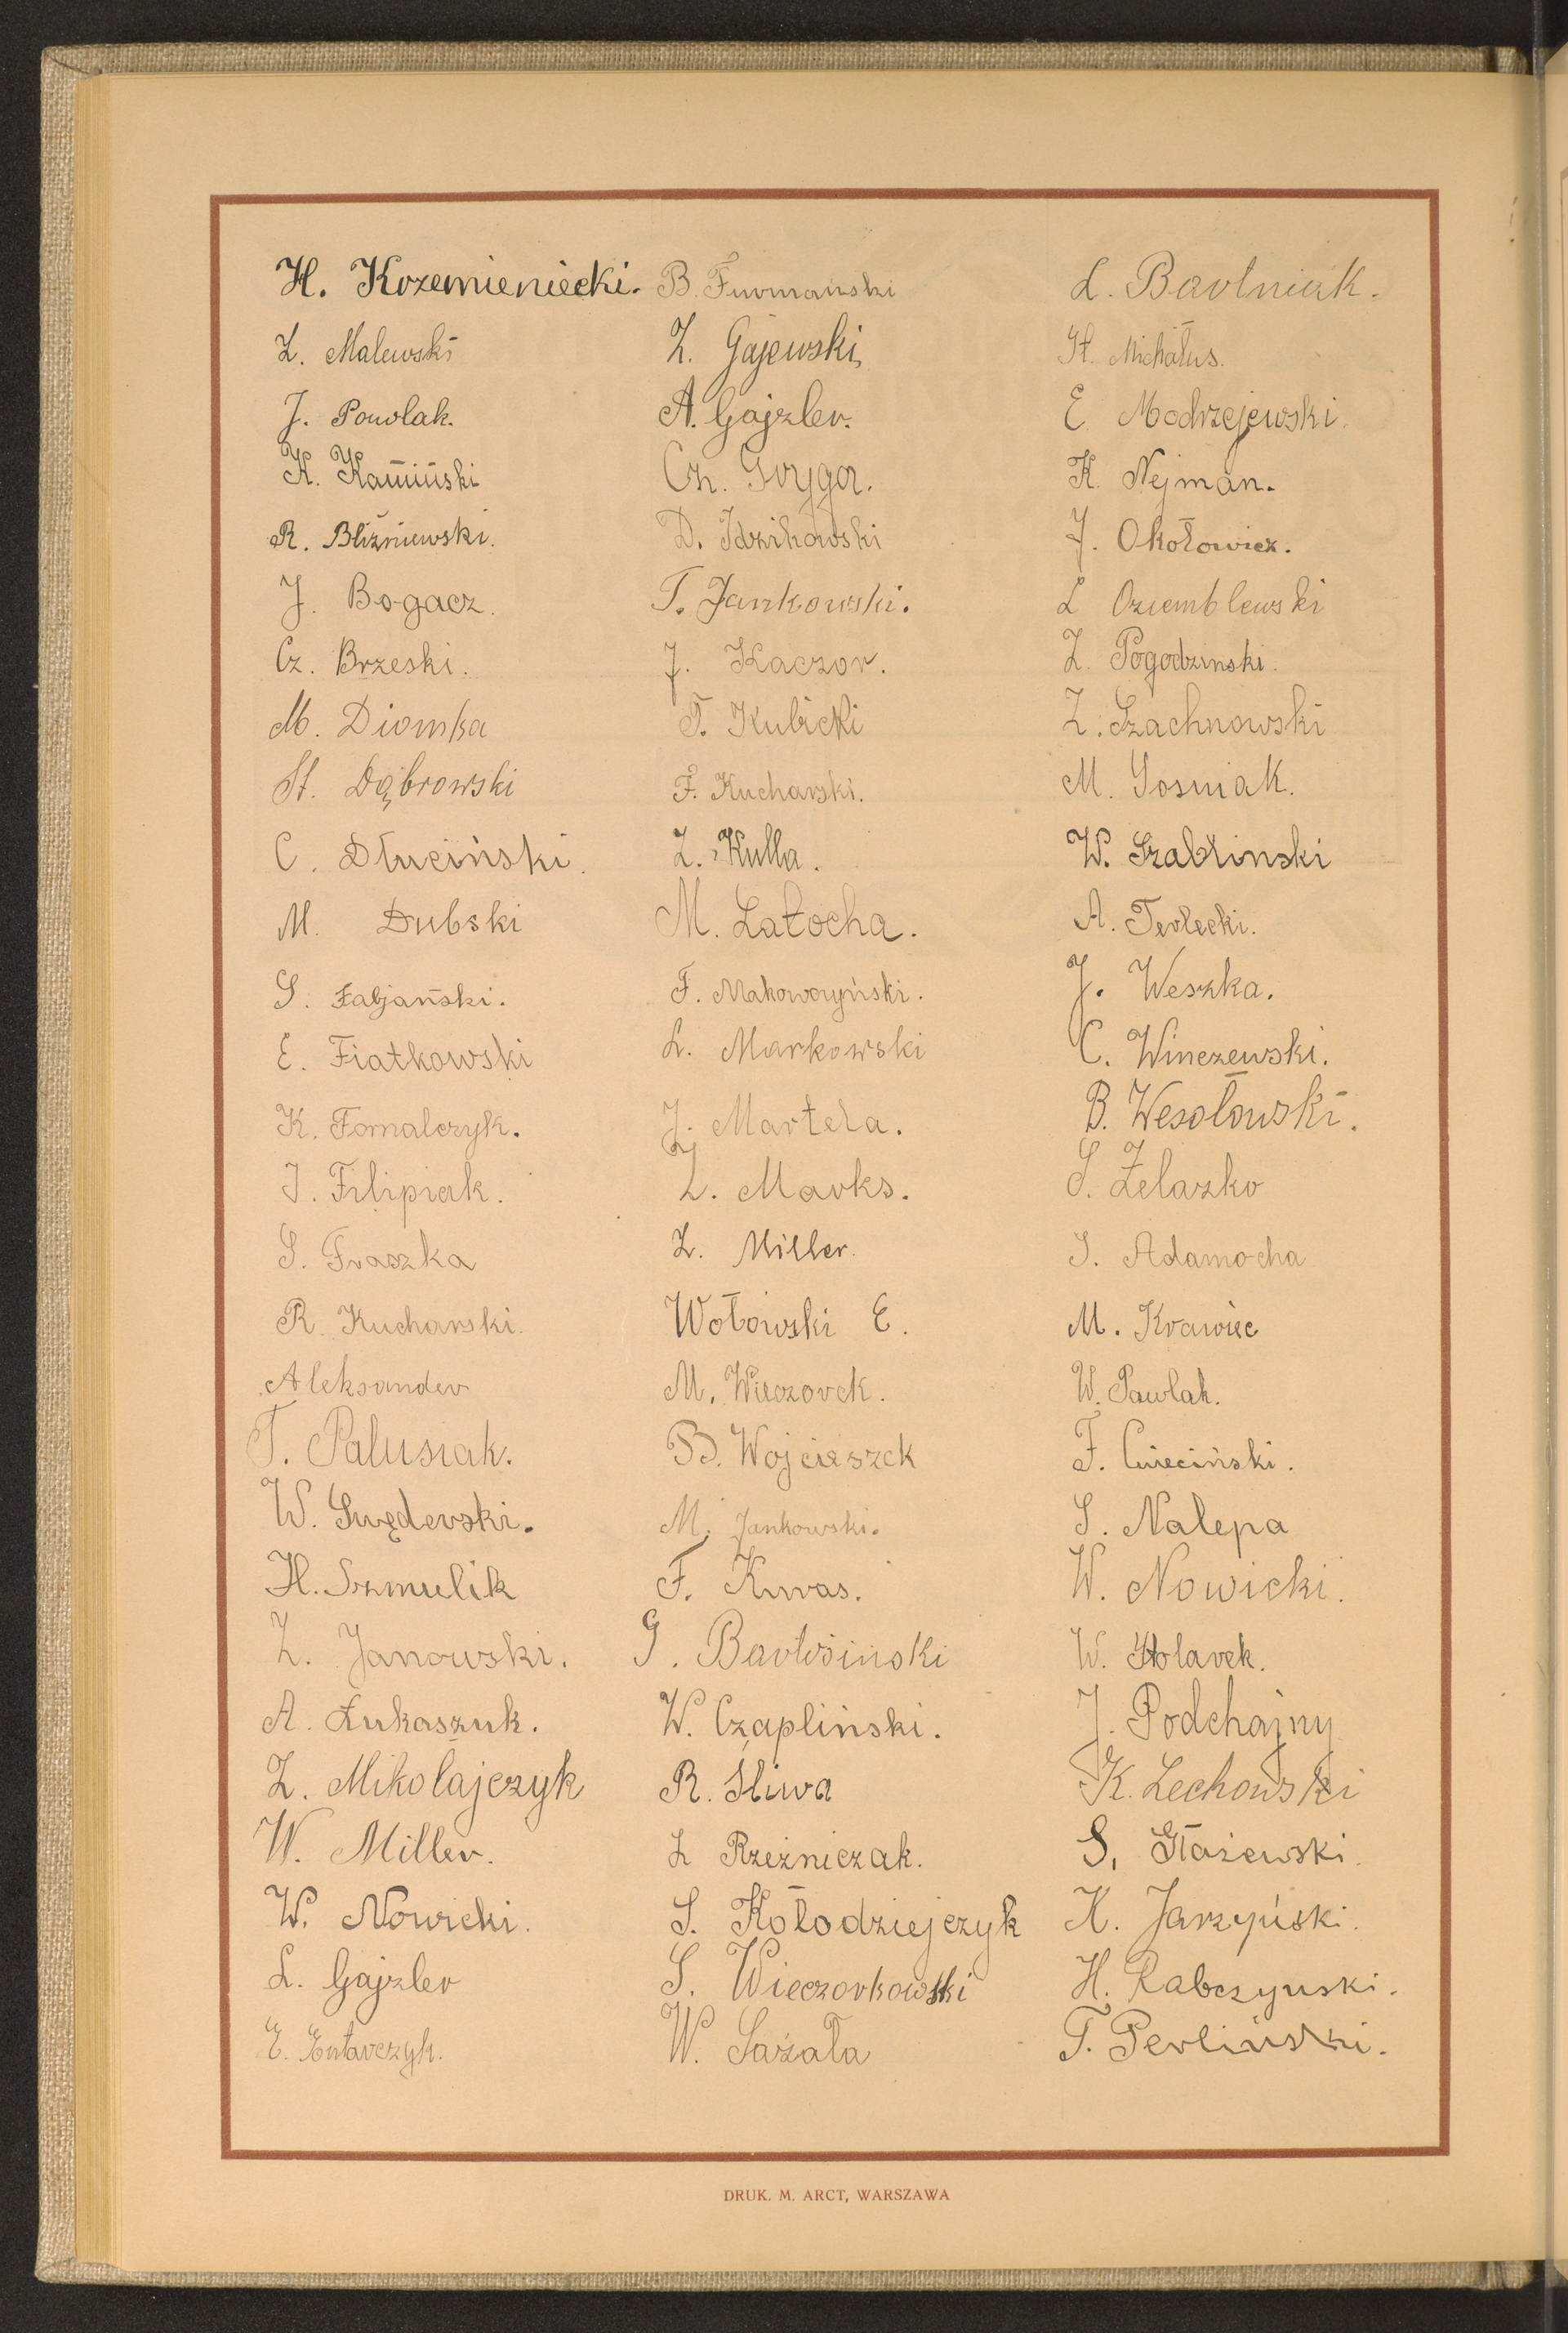 H. Krzemieniecki.
Z. Malewski
J. Powlak.
K. Kamiński
R. Bliźniewski.
J. Bogacz.
Cz. Brzeski.
M. Diomka
St. Dąbrowski
C. Dłuciński.
M. Dubski
S. Fabjański.
E. Fiatkowski
K. Fomalczyk.
J. Filipiak.
S. Fraszka
R. Kucharski.
Aleksander
T. Palusiak.
W. Swęderski.
H. Szmulik
Z. Janowski.
A. Łukaszuk.
Z. Mikołajczyk
W. Miller.
W. Nowicki.
L. Gajzler
E.
B. Furmański
Z. Gajewski
A. Gajzler.
Cz. Gryger.
D. Idzikowski
T. Jankowski.
J. Kaczor.
T. Kubicki
F. Kucharski.
Z. Kulla.
M. Latocha.
F. Makowczyński.
L. Markowski
J. Martela.
Z. Marks.
Z. Miller.
Wołowski E.
M. Wieczorek.
B. Wojcieszek
M. Jankowski.
F. Kwas.
G. Bartosiński
W. Czapliński.
R. Śliwa
L Rzeźniczak.
S. Kołodziejczyk
S. Wieczorkowski
W. Sażała
L. Bartniak.
St. Michałus.
E. Modrzejewski.
K. Nejman.
J. Okołowicz.
L Oziemblewski
Z. Pogodzinski.
Z. Szachnowski
M. Sosniak.
W. Szabliński
A. Terlecki.
J. Weszka.
C. Winczewski.
B. Wesołowski.
S. Żelazko
S. Adamocha
M. Krawiec
W. Pawlak.
F. Ćwieciński.
S. Nalepa
W. Nowicki.
W. Holarek.
J. Podchajny
K. Lechowski
S. Głażewski.
K. Jarzyński.
H. Rabczyński.
T. Perliński.
DRUK. M. ARCT, WARSZAWA